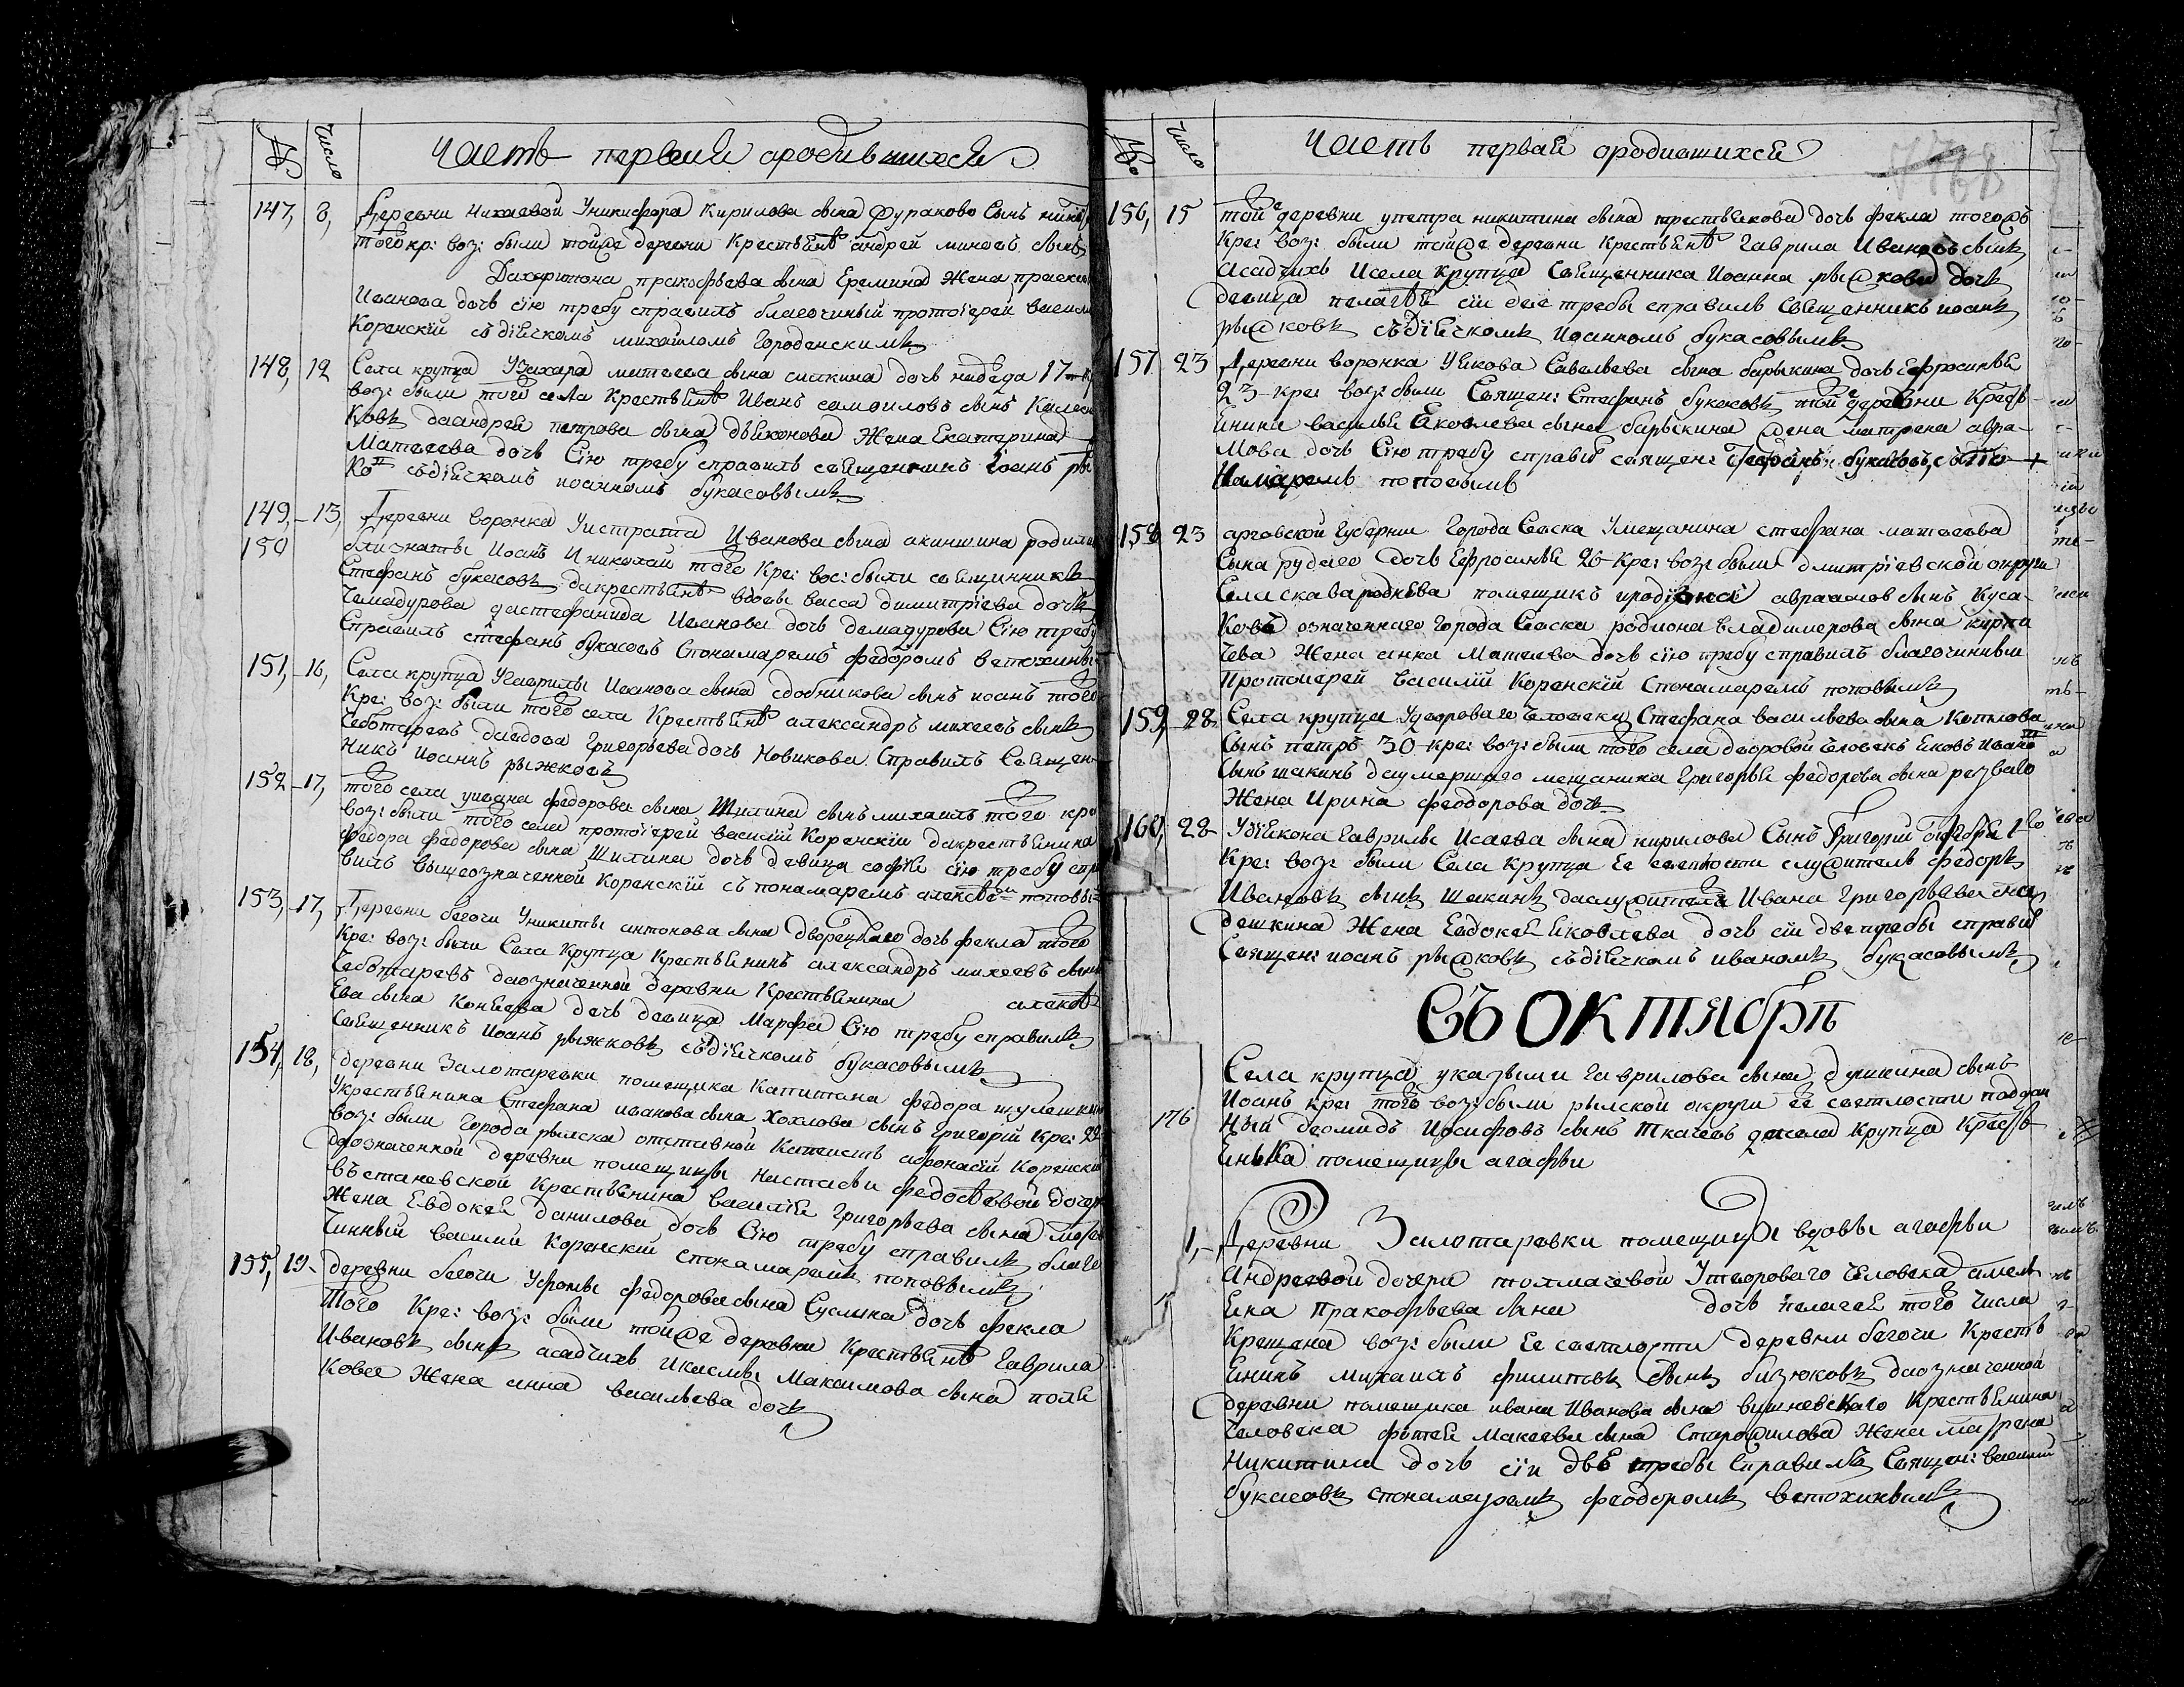 № число Часть первая ородившихся
147, 8, Деревни нихаевой Уникифора Кирилова сына Фураково Сынъ
того кр: воз: были тойже деревни Крестьянiнъ андрей минеевъ сынъ
Дахаритона пракофьева сына Еремина Жена праско
Иванова дочь сiю требу справилъ благочиный протоiерей васили
Коренскiй съдiячкомъ михаиломъ Городенскимъ
148, 12 Села крупца Узахара матвеева сына силкина дочь надежда 17 кр
воз: были того села Крестьянiнъ Иванъ самоиловъ сынъ
ковъ даандрея петрова сына дьяконова Жена Екатерина
Матвеева дочь Сiю требу справилъ священникъ Iоанъ ры
ко съдiячкомъ иоанномъ букасоввымъ
149, 13, Деревни воронка Уистрата Иванова сына акиншина родили
150 близнаты Иоанъ Иниколай того Кре: вос: были священникъ
Стефанъ букасовъ дакрестьянiнъ вдовы васса димитрiева дочь
Чемадурова дастефанида Иванова дочь демадурова Сiю требу
Справилъ стефанъ букасовъ Спонамаремъ федоромъ ветохины
151, 16, Села крупца Угаврилы Иванова сына сдобникова сынъ иоанъ того
Кре: воз: были того села Крестьянiнъ александръ михеевъ сынъ
Чеботаревъ даедова Григорьева дочь Новикова Справилъ Священ
никъ Иоаннъ рыжковъ
152 17, того села уивана федорова сына Шилина сынъ михаилъ того кре
воз: были того села протоiерей василiй Коренскiй дакрестьянина
федора федорова сына Шилина дочь девица софья сiю требу спра
вилъ вышеозначенной Коренскiй съ понамаремъ алексѣемъ поповы
153, 17, Деревни бегочи Уникиты антонова сына дворецкаго дочь фекла того
Кре: воз: были Села Крупца Крестьянинъ александръ михеевъ сынъ
Чеботаревъ даозначенной деревни Крестьянина алексѣ
ева сына Коняева дочь девица Марфа Сiю требу справилъ
священникъ Иоанъ рыжковъ съдiячкомъ букасовымъ
154, 18, деревни Залотаревки помещика Капитана федора шулешки
Укрестьянина Стефана иванова сына Хохлова сынъ Григорiй кре: 22
воз: были Города рыльска отставной Капеистъ афонасiй Коренски
даозначенной деревни помещицы Настасьи федосѣевой дочери
въстаневской Крестьянина василiя Григорьева сына
Жена Евдокея данилова дочь Сiю требу справилъ благо
чинный василий Коренскiй спонамаремъ поповымъ
155, 19 деревни бегочи Уфомы федорова сына Суслика дочь фекла
того Кре: воз: были тойже деревни Крестьянiнъ Гаврила
Ивановъ сынъ асадчихъ Максимова сына поля
кова Жена анна васильева дочь
№ число Часть первая ородившихся
156, 15 той деревни упетра никитина сына дочь фекла того
Кре: воз: были тойже деревни Крестьянiнъ Гаврила Ивановъ сынъ
Асадчихъ Исела крупца Священника Иоанна рыжкова дочь
девица пелагѣя сiи две требы справилъ Священникъ иоанъ
рыжковъ съдiячкомъ Иоанномъ букасовымъ
157 23 Деревни воронка Уякова Савельева сына барыкина дочь Ефросинья
23 кре: воз: были Священ: Стефанъ букасовъ той деревни Кресть
янина василья Яковлева сына барыкина жена матрена авра
мова дочь Сiю требу справилъ священ: Стефанъ букасовъ
понамаремъ поповымъ
158 23 арловской Губернии Города Севска Умещанина стефана матвеева
Сына рудаго дочь Ефросинья 26 Кре: воз: были дмитрiевской округи
Села помещикъ авраамовъ сынъ Куса
ковъ означеннаго Города Севска радиона владимерова сына
чева Жена анна Матвеева дочь сiю требу справилъ благочинный
Протоиерей василiй Коренскiй Спонамаремъ поповымъ
159, 28 Села крупца Удвороваго человека Стефана васильева сына Котлова
Сынъ петръ 30 кре: воз: были того села дворовой человекъ яковъ Иван
Сынъ шакинъ даумершаго мещанина Григорья федорова сына резваго
Жена Ирина феодорова дочь
160, 28 Удiякона Гаврилы Исаева сына кирилова Сынъ Григорий 1го
Кре: воз: были Села Крупца Ее светлости служитель федоръ
Ивановъ сынъ Шакинъ даслужителя Ивана Григорьева сына
дешкина Жена Евдокея Яковлева дочь сiи две требы справилъ
Священ: иоанъ рыжковъ съдiячкомъ иваномъ букасовымъ
Въ октябрѣ
Села крупца Гаврилова сына душкина сынъ
Иоанъ кре: того воз: были рылской округи ее светлости поддан
176 ный деомидъ Иосифовъ сынъ Ткачевъ дасела Крупца Кресть
янька помещицы агафьи
1, Деревни Залотаревки помещицы вдовы агафьи
Андреевой дочери толмачевой Удвороваго человека
яна Пракофьева сына дочь пелагея того числа
Крещена воз: были Ее светлости деревни бегочи Кресть
янинъ михаилъ филиповъ сынъ бизюковъ даозначенной
деревни помещика ивана Иванова сына вишневскаго Крестьянина
человека фатея Макеева сына Старожилова Жена матрена
Никитина дочь сiи двѣ требы Справилъ Священ: василий
букасовъ спонамаремъ феодоромъ ветохинымъ